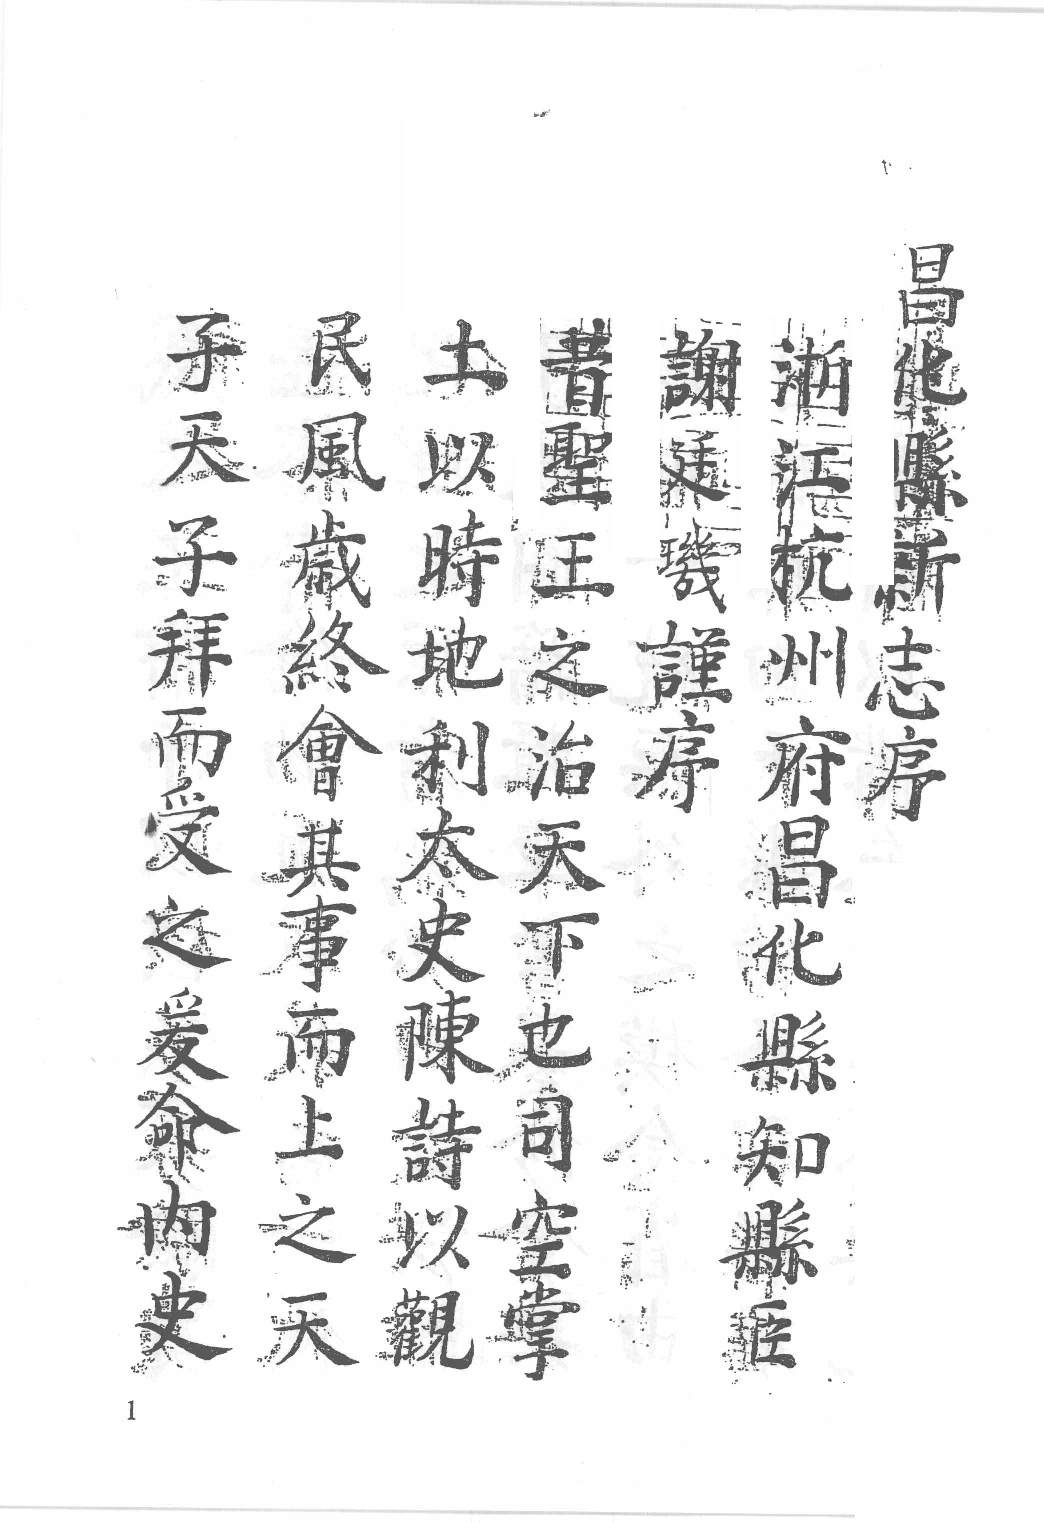 昌化縣新志序
浙江杭州府昌化縣知縣臣
謝廷璣謹序
昔聖王之治天下也司空掌
土以時地利太史陳詩以觀
民風歲終會其事而上之天
子天子拜而受之爰命內史
1